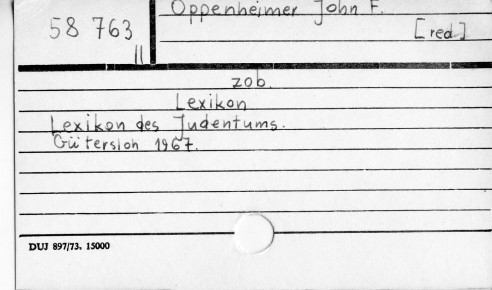 Oppenheimer John F.
58 763
[red]
II
zob.
Lexikon
Lexikon des Judentums.
Gütersloh 1967.
DUJ 897/73. 15000